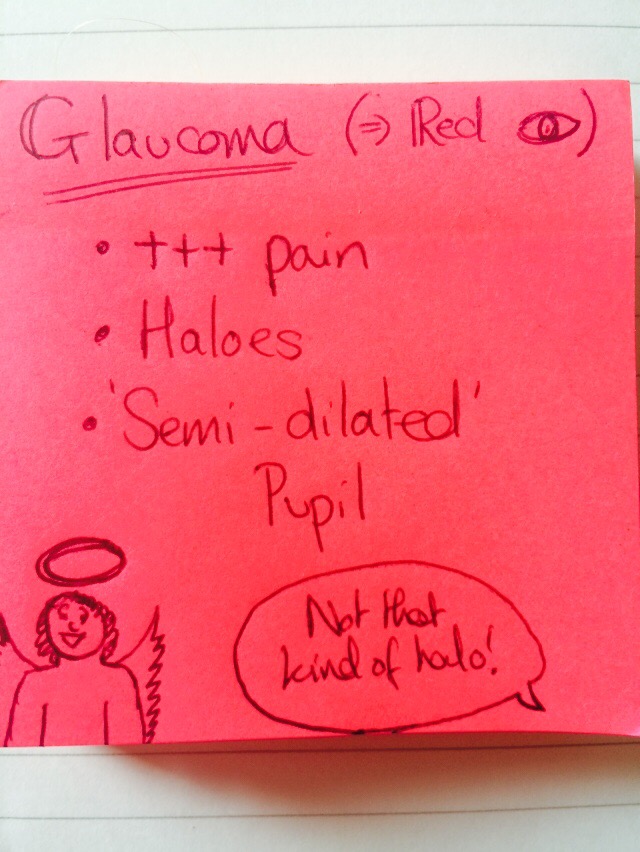 Glaucoma (⇒ Red 👁)
• +++ pain
• Haloes
• 'Semi-dilated'
Pupil
Not that
kind of halo!